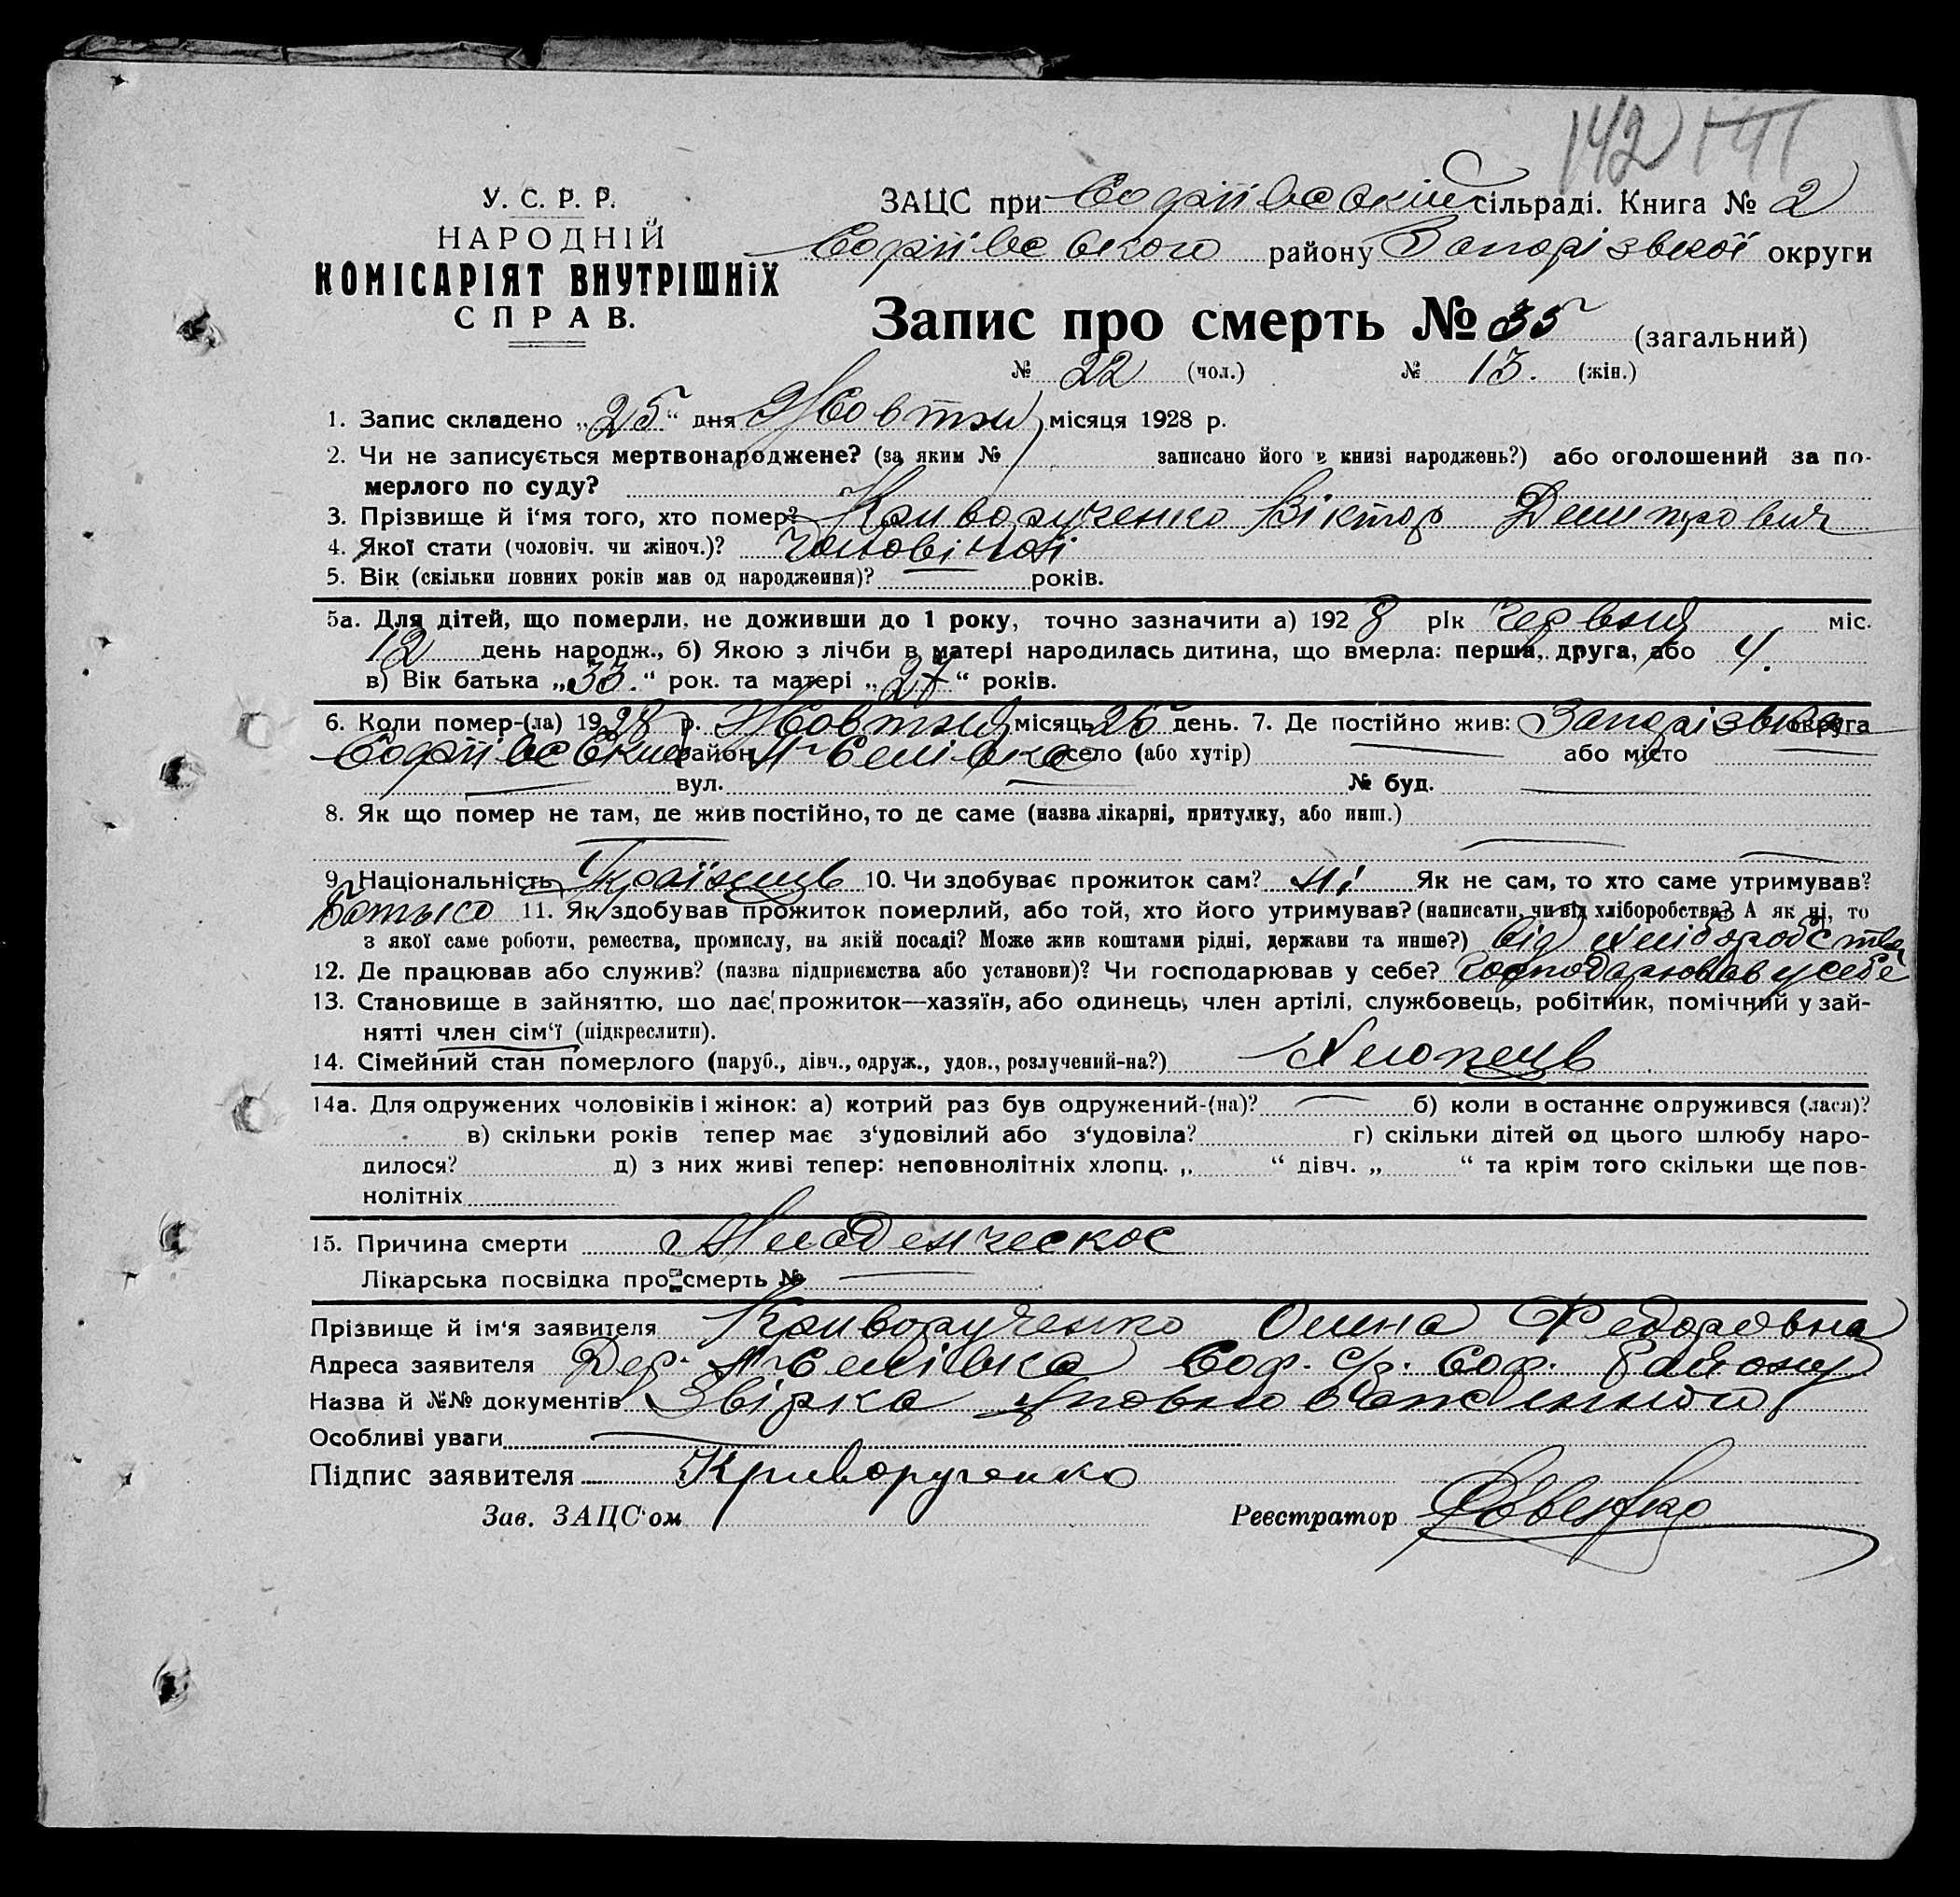 142
У. С. Р. Р.
НАРОДНІЙ
КОМІСАРІЯТ ВНУТРІШНІХ
СПРАВ.
ЗАЦС при Софіївській сільраді. Книга № 2
Софіївського району Запорізької округи
Запис про смерть № 35 (загальний)
№ 22 (чол.) № 13. (жін.)
1. Запис складено „25“ дня Жовтня місяця 1928 р.
2. Чи не записується мертвонароджене? (за яким № записано його в книзі народжень?) або оголошений за по-
мерлого по суду?
3. Прізвище й і‘мя того, хто помер? Криворученко Віктор Дмитрович
4. Якої стати (чоловіч. чи жіноч.)? Чоловічої
5. Вік (скільки повних років мав од народження)? — років.
5а. Для дітей, що померли, не доживши до 1 року, точно зазначити а) 1928 рік червня міс.
12 день народж., б) Якою з лічби в матері народилась дитина, що вмерла: перша, друга, або 4.
в) Вік батька „33.“ рок. та матері „27“ років.
6. Коли помер-(ла) 1928 р. Жовтня місяць 25 день. 7. Де постійно жив: Запорізька округа
Софіївський район село (або хутір) — або місто —
— вул. — № буд. —
8. Як що помер не там, де жив постійно, то де саме (назва лікарні, притулку, або инш.)
— — —
9. Національність Українець 10. Чи здобуває прожиток сам? ні Як не сам, то хто саме утримував?
Батько 11. Як здобував прожиток померлий, або той, хто його утримував? (написати, чи від хліборобства? А як ні, то
з якої саме роботи, ремества, промислу, на якій посаді? Може жив коштами рідні, держави та инше?) від хліборобства
12. Де працював або служив? (назва підприємства або установи)? Чи господарював у себе? господарював у себе
13. Становище в зайняттю, що дає прожиток—хазяїн, або одинець, член артілі, службовець, робітник, помічний у зай-
нятті член сім‘ї (підкреслити).
14. Сімейний стан померлого (паруб., дівч., одруж., удов., розлучений-на?) Хлопець
14а. Для одружених чоловіків і жінок: а) котрий раз був одружений-(на)? — б) коли в останнє одружився (лася)?
в) скільки років тепер має з‘удовілий або з‘удовіла? г) скільки дітей од цього шлюбу наро-
дилося? д) з них живі тепер: неповнолітніх хлопц. „ “ дівч. „ “ та крім того скільки ще пов-
нолітніх
15. Причина смерти Младенческое
Лікарська посвідка про смерть № —
Прізвище й ім‘я заявителя Криворученко Олина Федоровна
Адреса заявителя Дер. Соф. с/р. Соф. Району
Назва й №№ документів Звірка уповноваженного
Особливі уваги —
Підпис заявителя Криворученко
Зав. ЗАЦС‘ом Реєстратор